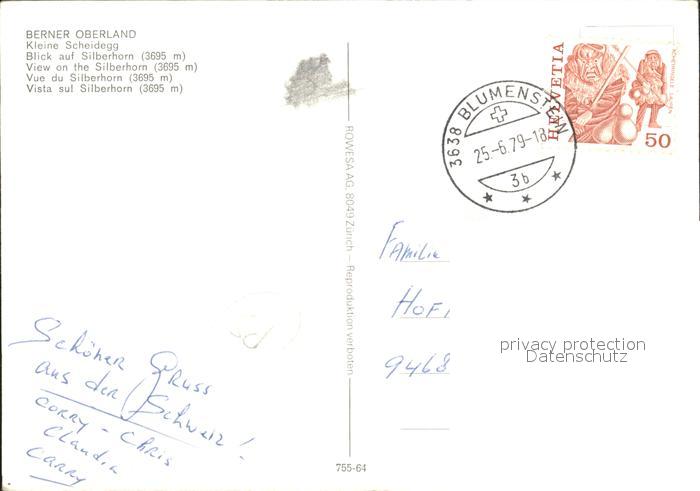 BERNER OBERLAND
Kleine Scheidegg
Blick auf Silberhorn (3695 m)
View on the Silberhorn (3695 m)
Vue du Silberhorn (3695 m)
Vista sul Silberhorn (3695 m)
ROWESA AG. 8049 Zürich — Reproduktion verboten
3638 BLUMENSTEIN
25.-6.79-18
3b
HELVETIA
50
Familie
HOFi
9468
privacy protection
Datenschutz
Schöner Gruss
aus der Schweiz!
CORRY - CHRIS
Claudia
CARRY
755-64